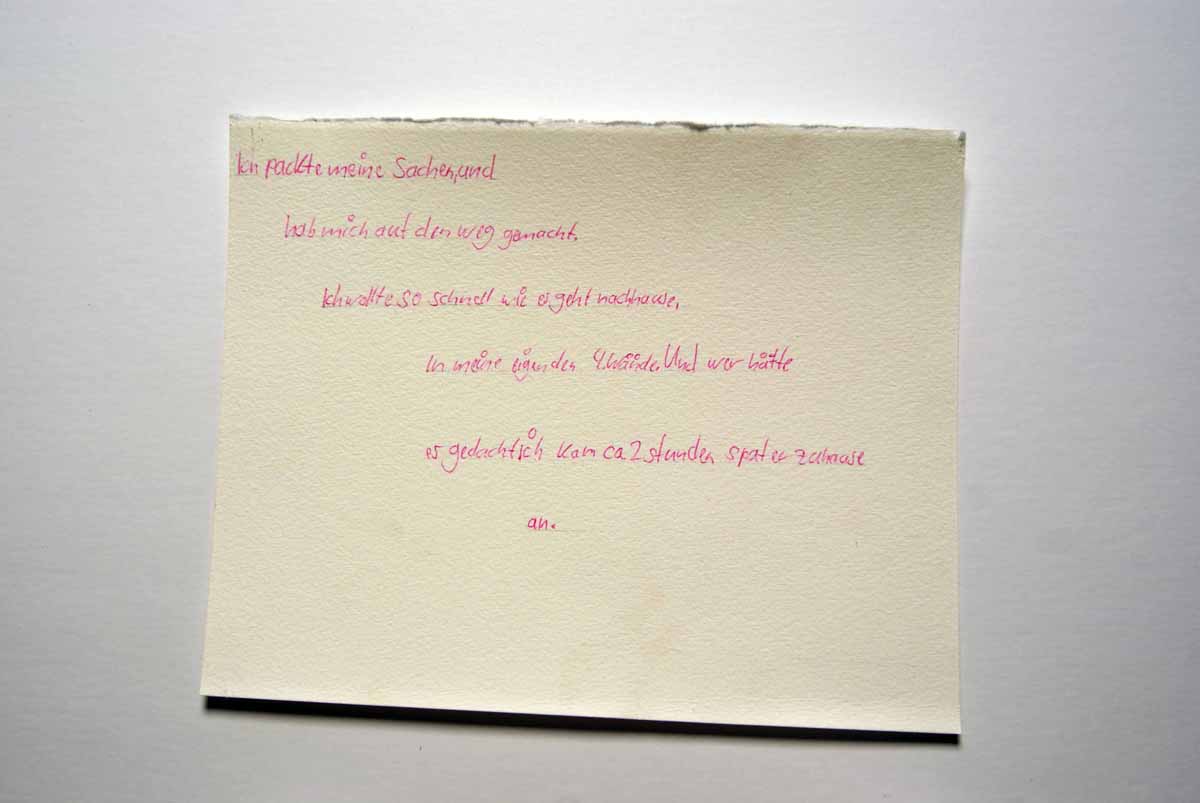 Ich packte meine Sachen, und
hab mich auf den weg gemacht.
Ich wollte so schnell wie es geht nachhause,
In meine eigenden 4. Wände. Und wer hätte
es gedacht ich kam ca 2 stunden später zuhause
an.